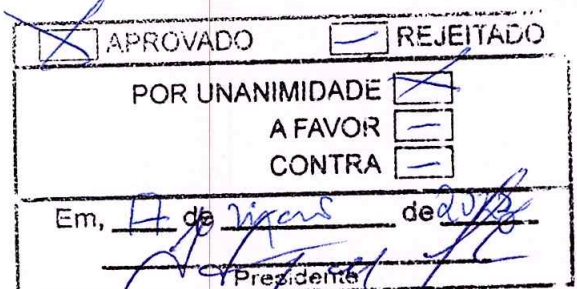 APROVADO REJEITADO
POR UNANIMIDADE
A FAVOR
CONTRA
Em, de de
Presidente